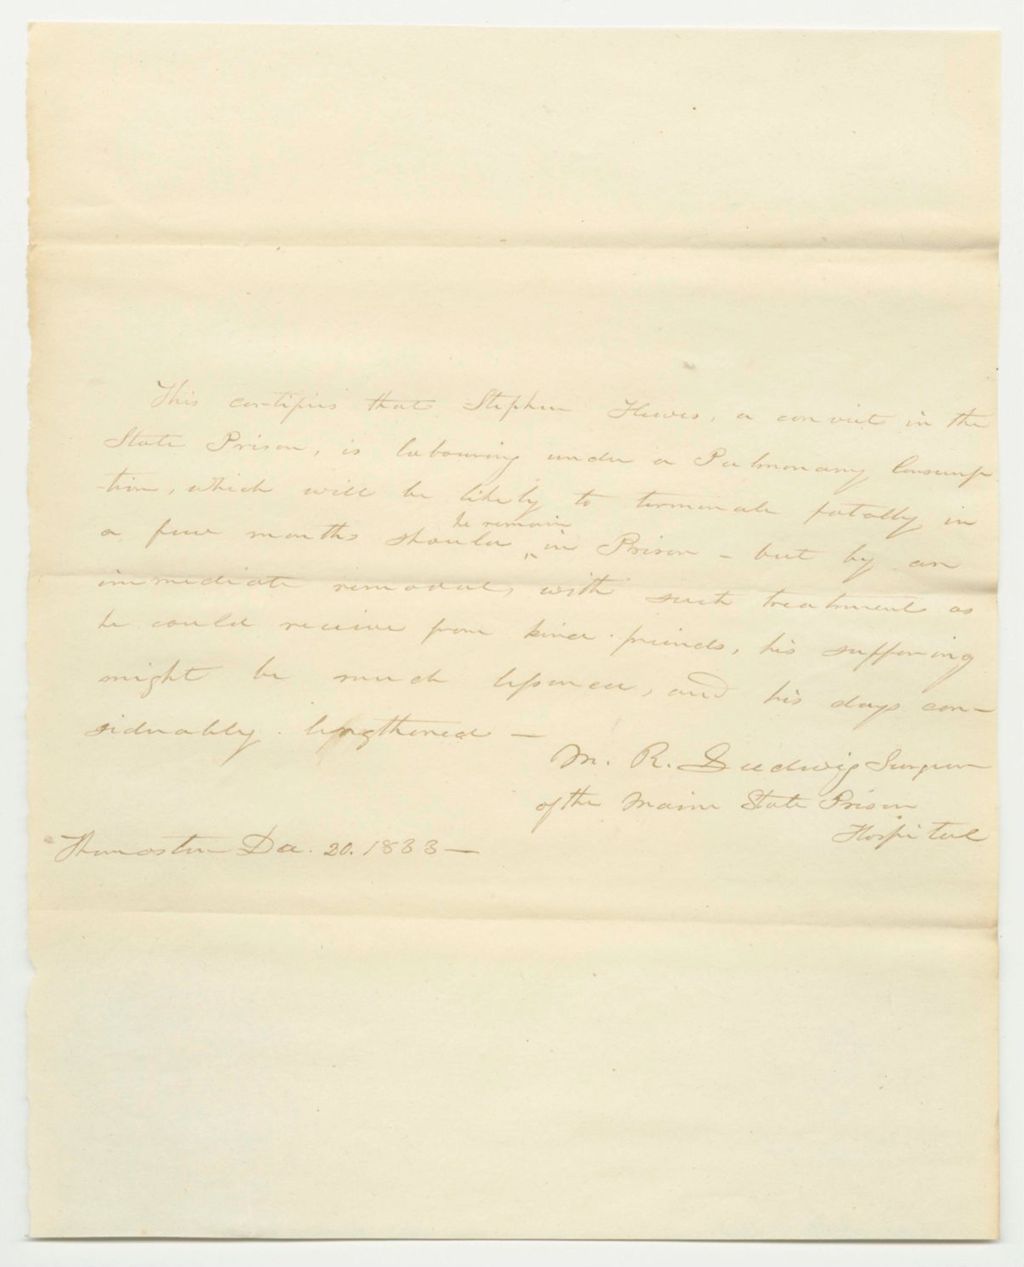 This certifies that Stephen Hewes, a convict in the
State Prison, is labouring under a Pulmonary Consump-
tion, which will be likely to terminate fatally in
a few months should he remain in Prison - but by an
immediate removal, with such treatment as
he could receive from kind friends, his suffering
might be much lessened, and his days con-
siderably lengthened -
M. R. Ludwig Surgeon
of the Maine State Prison
Hospital
Thomaston Dec. 20. 1833 -